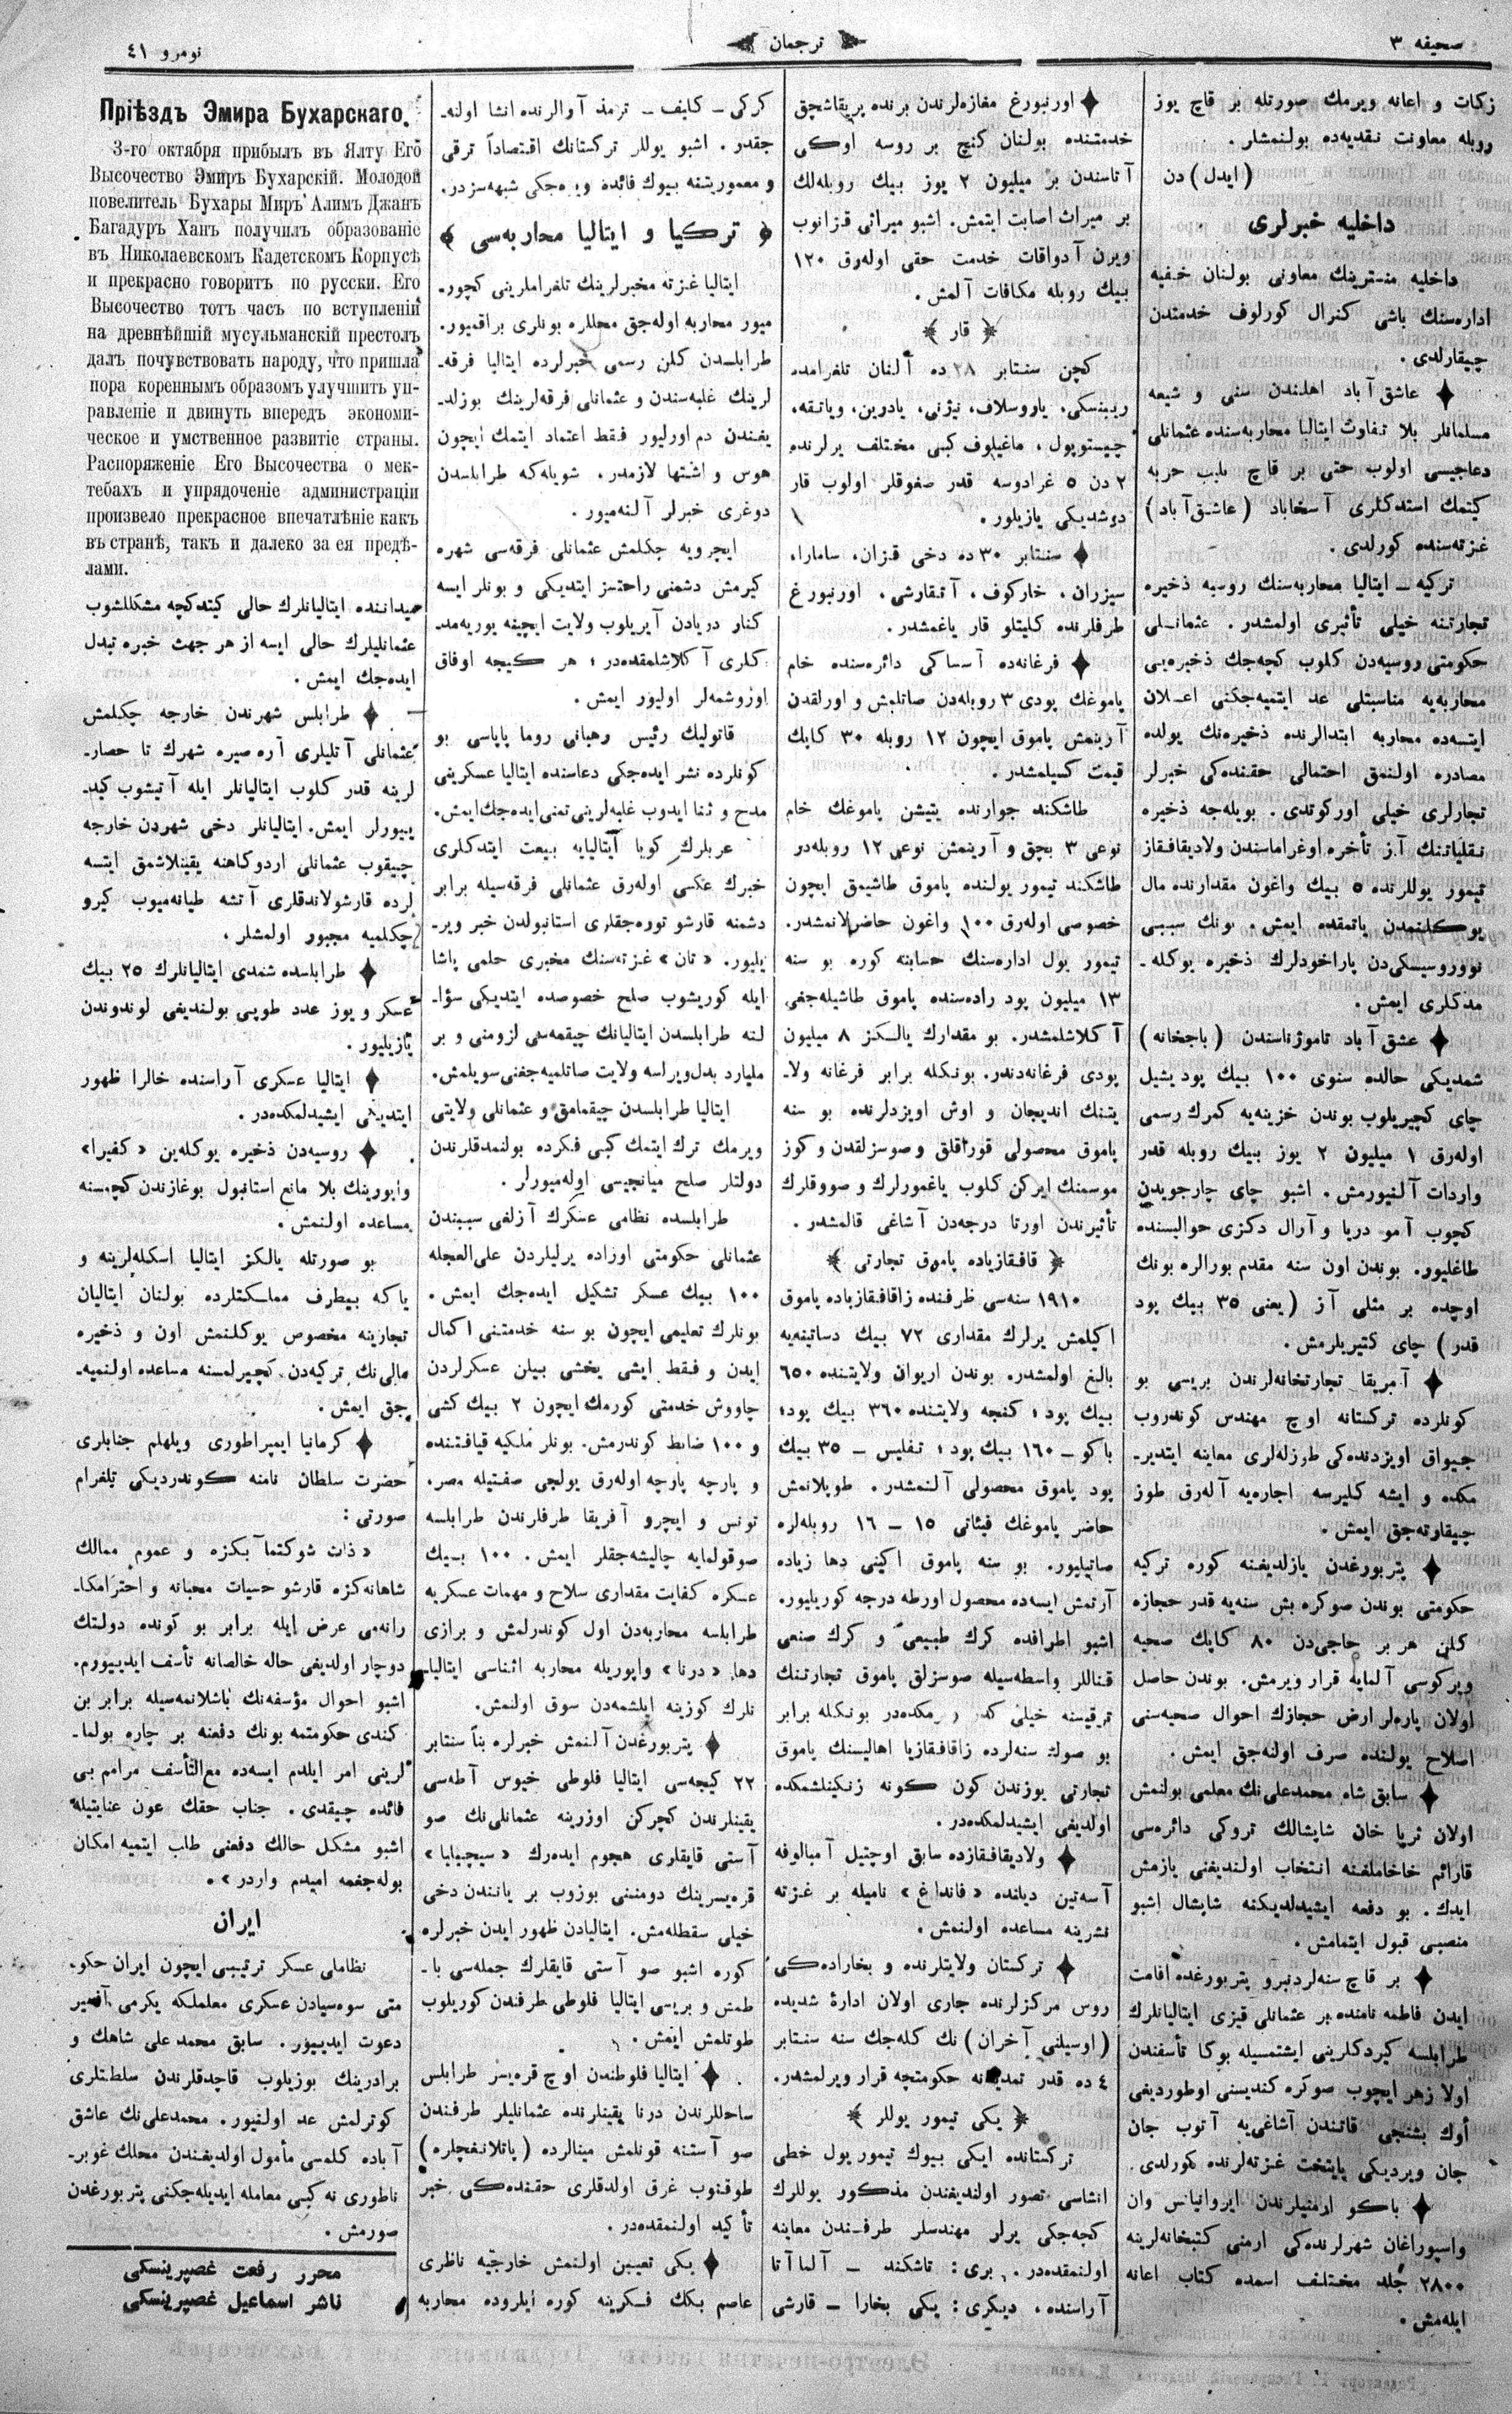 صحیفه ٣
ترجمان
نومرو ٤١
زكات و اعانه ویرمك صورتله بر قاچ یوز
روبله معاونت نقدیه‌ده بولنمشلر .
(ایدل) دن
داخلیه خبرلری
داخلیه منسترینك معاونی بولنان خفیه
اداره‌سنك باشی كنرال كورلوف خدمتدن
چیقارلدی .
عاشق آباد اهلندن سنی و شیعه
مسلمانلر بلا تفاوت ایتالیا محاربه‌سنده عثمانلی
دعاجیسی اولوب حتی بر قاچ طلب حربه
كیتمك استدكلری آسخاباد (عاشق‌آباد)
غزته‌سنده كورلدی .
تركیه ــ ایتالیا محاربه‌سنك روسیه ذخیره
تجارتنه خیلی تأثیری اولمشدر . عثمانلی
حكومتی روسیه‌دن كلوب كچه‌جك ذخیره‌یی
محاربه‌یه مناسبتلی عد ایتمیه‌جكنی اعلان
ایتسه‌ده محاربه ابتدالرنده ذخیره‌نك یولده
مصادره اولنمق احتمالی حقنده‌كی خبرلر
تجارلری خیلی اوركوتدی . بویله‌جه ذخیره
نقلیاتنك آز تأخره اوغراماسندن ولادیقافقاز
تیمور یوللرنده ٥ بیك واغون مقدارنده مال
یوكلنمدن یاتمقده ایمش . بونك سببی
نووروسیسكی‌دن پاراخودلرك ذخیره یوكله‌ـ
مدكلری ایمش .
عشق آباد تاموژناسندن (باجخانه)
شمدیكی حالده سنوی ١٠٠ بیك پود یشیل
چای كچیریلوب بوندن خزینه‌یه كمرك رسمی
اوله‌رق ١ میلیون ٢ یوز بیك روبله قدر
واردات آلنیورمش . اشبو چای چارجویدن
كچوب آمو دریا و آرال دكزی حوالیسنده
طاغلیور . بوندن اون سنه مقدم بورالره بونك
اوچده بر مثلی آز (یعنی ٣٥ بیك پود
قدر) چای كتیریلرمش .
آمریقا تجارتخانه‌لرندن بریسی بو
كونلرده تركستانه اوچ مهندس كوندروب
جیواق اویزدنده‌كی طوزله‌لری معاینه ایتدیرـ
مكده و ایشه كلیرسه اجاره‌یه آله‌رق طوز
چیقارته‌جق ایمش .
پتربورغدن یازلدیغنه كوره تركیه
حكومتی بوندن صوكره بش سنه‌یه قدر حجازه
كلن هر بر حاجی‌دن ٨٠ كاپك صحیه
ویركوسی آلمایه قرار ویرمش. بوندن حاصل
اولان پاره‌لر ارض حجازك احوال صحیه‌سنی
اصلاح یولنده صرف اولنه‌جق ایمش .
سابق شاه محمدعلی‌نك معلمی بولنمش
اولان ثریا خان شاپشالك تروكی دائره‌سی
قارائم خاخاملغنه انتخاب اولندیغنی یازمش
ایدك . بو دفعه ایشیدلدیكنه شاپشال اشبو
منصبی قبول ایتمامش .
بر قاچ سنه‌لردنبرو پتربورغده اقامت
ایدن فاطمه نامنده بر عثمانلی قیزی ایتالیانلرك
طرابلسه كیردكلرینی ایشتمسیله بوكا تأسفندن
اولا زهر ایچوب صوكره كندیسنی اوطوردیغی
أوك بشنجی قاتندن آشاغی‌یه آتوب جان
جان ویردیكی پایتخت غزته‌لرنده كورلدی.
باكو ارمنیلرندن ایروانیانس وان
واسپوراغان شهرلرنده‌كی ارمنی كتبخانه‌لرینه
٢٨٠٠ جلد مختلف اسمده كتاب اعانه
ایله‌مش .
اورنبورغ مغازه‌لرندن برنده پریقاشچق
خدمتنده بولنان كنچ بر روسه اوكی
آتاسندن بر میلیون ٢ یوز بیك روبله‌لك
بر میراث اصابت ایتمش. اشبو میراثی قزانوب
ویرن آدواقات خدمت حقی اوله‌رق ١٢٠
بیك روبله مكافات آلمش .
﴿ قار ﴾
كچن سنتابر ٢٨ ده آلنان تلغرامده
ریبنسكی، یاروسلاف، نیژنی، یادرین، ویاتقه،
چیستوپول ، ماغیلوف كبی مختلف یرلرنده
٢ دن ٥ غرادوسه قدر صغوقلر اولوب قار
دوشدیكی یازیلور .
سنتابر ٣٠ ده دخی قزان، سامارا،
سیزران ، خاركوف ، آتقارشی ، اورنبورغ
طرفلرنده كلیتلو قار یاغمشدر .
فرغانه‌ده آسساكی دائره‌سنده خام
پاموغك پودی ٣ روبله‌دن صاتلمش و اورلقدن
آرینمش پاموق ایچون ١٢ روبله ٣٠ كاپك
قیمت كسیلمشدر .
طاشكند جوارنده یتیشن پاموغك خام
نوعی ٣ بچق و آرینمش نوعی ١٢ روبله‌در
طاشكند تیمور یولنده پاموق طاشیمق ایچون
خصوصی اوله‌رق ١٠٠ واغون حاضرلانمشدر.
تیمور یول اداره‌سنك حسابنه كوره بو سنه
١٣ میلیون پود راده‌سنده پاموق طاشیله‌جغی
آكلاشلمشدر. بو مقدارك یالكز ٨ میلیون
پودی فرغانه‌دندر. بونكله برابر فرغانه ولاـ
یتنك اندیجان و اوش اویزدلرنده بو سنه
پاموق محصولی قوراقلق و صوسزلقدن و كوز
موسمنك ایركن كلوب یاغمورلرك و صووقلرك
تأثیرندن اورتا درجه‌دن آشاغی قالمشدر .
﴿ قافقازیاده پاموق تجارتی ﴾
١٩١٠ سنه‌سی ظرفنده زاقافقازیاده پاموق
اكیلمش یرلرك مقداری ٧٢ بیك دساتینه‌یه
بالغ اولمشدر. بوندن اریوان ولایتنده ٦٥٠
بیك پود ؛ كنجه ولایتنده ٣٦٠ بیك پود؛
باكو ــ ١٦٠ بیك پود ؛ تفلیس ــ ٣٥ بیك
پود پاموق محصولی آلنمشدر . طوپلانمش
حاضر پاموغك فیئاتی ١٥ ــ ١٦ روبله‌لره
صاتیلیور. بو سنه پاموق اكینی دها زیاده
آرتمش ایسه‌ده محصول اورطه درجه كوریلیور.
اشبو اطرافده كرك طبیعی و كرك صنعی
قناللر واسطه‌سیله صوسزلق پاموق تجارتنك
ترقیسنه خیلی بونكله برابر
بو صوك سنه‌لرده زاقافقازیا اهالیسنك پاموق
تجارتی یوزندن كون كونه زنكینلشمكده
اولدیغی ایشیدلمكده‌در .
ولادیقافقازده سابق اوچتیل آمبالوفه
آسه‌تین دیلنده «فانداغ» نامیله بر غزته
نشرینه مساعده اولنمش .
تركستان ولایتلرنده و بخاراده‌كی
روس مركزلرنده جاری اولان ادارۀ شدیده
(اوسیلنی آخران) نك كله‌جك سنه سنتابر
٤ ده قدر تمدیدینه حكومتچه قرار ویرلمشدر.
﴿ یكی تیمور یوللر ﴾
تركستانده ایكی بیوك تیمور یول خطی
انشاسی تصور اولندیغندن مذكور یوللرك
كچه‌جكی یرلر مهندسلر طرفندن معاینه
اولنمقده‌در . بری : تاشكند ــ آلما آتا
آراسنده ، دیكری : یكی بخارا ــ قارشی
كركی ــ كلیف ــ ترمذ آوالرنده انشا اولنه‌ـ
جقدر . اشبو یوللر تركستانك اقتصاداً ترقی
و معموریتنه بیوك فائده ویره‌جكی شبهه‌سزدر.
﴿ تركیا و ایتالیا محاربه‌سی ﴾
ایتالیا غزته مخبرلرینك تلغراملرینی كچورـ
میور محاربه اوله‌جق محللره بونلری براقمیور.
طرابلسدن كلن رسمی خبرلرده ایتالیا فرقه‌ـ
لرینك غلبه‌سندن و عثمانلی فرقه‌لرینك بوزلدـ
یغندن دم اورلیور فقط اعتماد ایتمك ایچون
هوس و اشتها لازمدر. شویله‌كه طرابلسدن
دوغری خبرلر آلنه‌میور .
ایچرویه چكلمش عثمانلی فرقه‌سی شهره
كیرمش دشمنی راحتسز ایتدیكی و بونلر ایسه
كنار دریادن آیریلوب ولایت ایچینه یوریه‌مدـ
كلری آكلاشلمقده‌در ؛ هر كیچه اوفاق
اوزوشمه‌لر اولیور ایمش .
قاتولیك رئیس رهبانی روما پاپاسی بو
كونلرده نشر ایده‌جكی دعاسنده ایتالیا عسكرینی
مدح و ثنا ایدوب غلبه‌لرینی تمنی ایده‌جك ایمش.
عربلرك كویا ایتالیایه بیعت ایتدكلری
خبرك عكسی اوله‌رق عثمانلی فرقه‌سیله برابر
دشمنه قارشو توره‌جقلری استانبولدن خبر ویرـ
یلیور. «تان» غزته‌سنك مخبری حلمی پاشا
ایله كوریشوب صلح خصوصده ایتدیكی سؤاـ
لنه طرابلسدن ایتالیانك چیقمه‌سی لزومنی و بر
ملیارد بدل ویراسه ولایت صاتلمیه‌جغنی سویلمش.
ایتالیا طرابلسدن چیقمامق و عثمانلی ولایتی
ویرمك ترك ایتمك كبی فكرده بولنمدقلرندن
دولتلر صلح میانجیسی اوله‌میورلر .
طرابلسده نظامی عسكرك آزلغی سببندن
عثمانلی حكومتی اوراده یرلیلردن علی‌العجله
١٠٠ بیك عسكر تشكیل ایده‌جك ایمش .
بونلرك تعلیمی ایچون بو سنه خدمتنی اكمال
ایدن و فقط ایشی یخشی بیلن عسكرلردن
چاووش خدمتی كورمك ایچون ٢ بیك كشی
و ١٠٠ ضابط كوندرمش. بونلر ملكیه قیافتنده
و پارچه پارچه اوله‌رق یولجی صفتیله مصر،
تونس و ایچرو آفریقا طرفلرندن طرابلسه
صوقولمایه چالیشه‌جقلر ایمش . ١٠٠ بیك
عسكره كفایت مقداری سلاح و مهمات عسكریه
طرابلسه محاربه‌دن اول كوندرلمش و برازی
دها «درنا» واپوریله محاربه اثناسی ایتالیاـ
نلرك كوزینه ایلشمه‌دن سوق اولنمش.
پتربورغدن آلنمش خبرلره بناً سنتابر
٢٢ كیچه‌سی ایتالیا فلوطی خیوس آطه‌سی
یقینلرندن كچركن اوزرینه عثمانلی‌نك صو
آستی قایقلری هجوم ایده‌رك «سیچیلیا»
قره‌یسرینك دومننی بوزوب بر یانندن دخی
خیلی سقطله‌مش. ایتالیادن ظهور ایدن خبرلره
كوره اشبو صو آستی قایقلرك جمله‌سی باـ
طمش و بریسی ایتالیا فلوطی طرفندن كوریلوب
طوتلمش ایمش .
ایتالیا فلوطندن اوچ قره‌یسر طرابلس
ساحللرندن درنا یقینلرنده عثمانلیلر طرفندن
صو آستنه قونلمش مینالرده (پاتلانغچلره)
طوقنوب غرق اولدقلری حقنده‌كی خبر
تأكید اولنمقده‌در .
یكی تعیین اولنمش خارجیه ناظری
عاصم بكك فكرینه كوره ایلروده محاربه
Пріѣздъ Эмира Бухарскаго.
3-го октября прибылъ въ Ялту Его
Высочество Эмиръ Бухарскій. Молодой
повелитель Бухары Миръ Алимъ Джанъ
Багадуръ Ханъ получилъ образованіе
въ Николаевскомъ Кадетскомъ Корпусѣ
и прекрасно говоритъ по русски. Его
Высочество тотъ часъ по вступленіи
на древнѣйшій мусульманскій престолъ
далъ почувствовать народу, что пришла
пора кореннымъ образомъ улучшить уп-
равленіе и двинуть впередъ экономи-
ческое и умственное развитіе страны.
Распоряженіе Его Высочества о мек-
тебахъ и упрядоченіе администраціи
произвело прекрасное впечатлѣніе какъ
въ странѣ, такъ и далеко за ея предѣ-
лами.
میداننده ایتالیانلرك حالی كیتدكچه مشكللشوب
عثمانلیلرك حالی ایسه از هر جهت خبره تبدل
ایده‌جك ایمش .
طرابلس شهرندن خارجه چكلمش
عثمانلی آتلیلری آره صیره شهرك تا حصارـ
لرینه قدر كلوب ایتالیانلر ایله آتیشوب كیدـ
ییورلر ایمش. ایتالیانلر دخی شهردن خارجه
چیقوب عثمانلی اردوكاهنه یقینلاشمق ایتسه
لرده قارشولاندقلری آتشه طیانه‌میوب كیرو
چكلمیه مجبور اولمشلر .
طرابلسده شمدی ایتالیانلرك ٢٥ بیك
عسكر و یوز عدد طوپی بولندیغی لوندوندن
یازیلیور .
ایتالیا عسكری آراسنده خالرا ظهور
ایتدیكی ایشیدلمكده‌در .
روسیه‌دن ذخیره یوكله‌ین «كفیرا»
واپورینك بلا مانع استانبول بوغازندن كچمسنه
مساعده اولنمش .
بو صورتله یالكز ایتالیا اسكله‌لرینه و
یاكه بیطرف مملكتلرده بولنان ایتالیان
تجارینه مخصوص یوكلنمش اون و ذخیره
مالی‌نك تركیه‌دن كچیرلمسنه مساعده اولنمیه‌ـ
جق ایمش .
كرمانیا ایمپراطوری ویلهلم جنابلری
حضرت سلطان نامنه كوندردیكی تلغرام
صورتی :
«ذات شوكتمآبكزه و عموم ممالك
شاهانه‌كزه قارشو حسیات محبانه و احترامكاـ
رانه‌می عرض ایله برابر بو كونده دولتك
دوچار اولدیغی حاله خالصانه تأسف ایدییورم.
اشبو احوال مؤسفه‌نك باشلانمه‌سیله برابر بن
كندی حكومتمه بونك دفعنه بر چاره بولماـ
لرینی امر ایلدم ایسه‌ده مع‌التأسف مرامم بی
فائده چیقدی . جناب حقك عون عنایتیله
اشبو مشكل حالك دفعنی طلب ایتمیه امكان
بوله‌جغمه امیدم واردر» .
ایران
نظاملی عسكر ترتیبی ایچون ایران حكوـ
متی سوه‌سیادن عسكری معلملكه یكرمی آفسیر
دعوت ایدییور . سابق محمد علی شاهك و
برادرینك بوزیلوب قاچدقلرندن سلطنتلری
كوترلمش عد اولنیور . محمدعلی‌نك عاشق
آباده كلمسی مأمول اولدیغندن محلك غوبرـ
ناطوری نه كبی معامله ایدیله‌جكنی پتربورغدن
صورمش .
محرر رفعت غصپرینسكی
ناشر اسماعیل غصپرینسكی